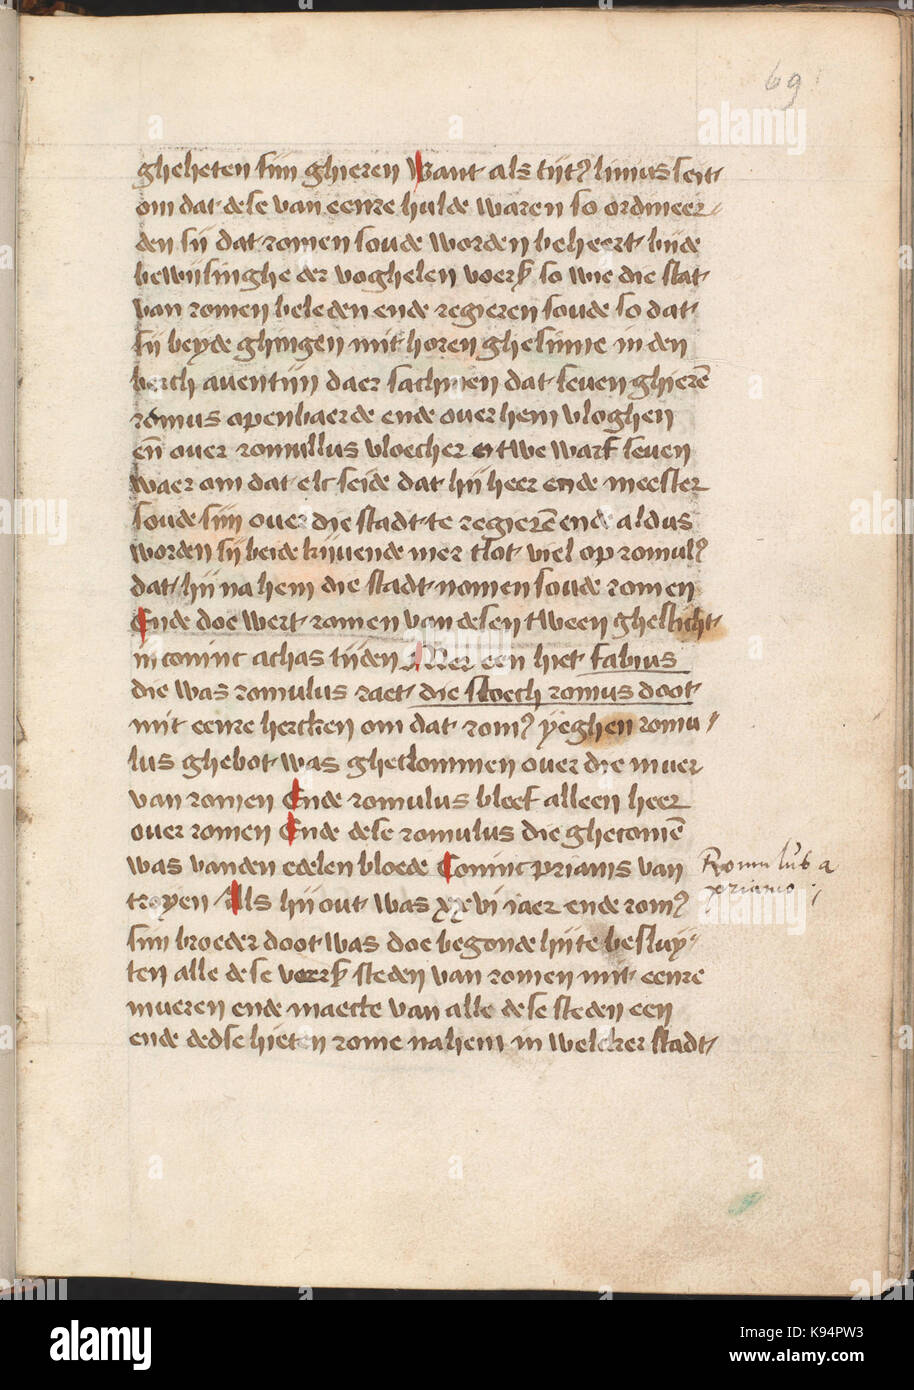 69
gheheten sijn ghieren Want als tijtꝰ liuius seit
om dat dese van eenre hulde waren so ordineer
den sij dat romen soude worden beheert bijde
bewijsinghe der voghelen voerß so wie die stat
van romen beleden ende regieren soude so dat
sij beyde ghingen mit horen ghesinne in den
berch auentijn daer sachmen dat seuen ghierē
romus openbaerde ende ouer hem vloghen
eñ ouer romullus vloecher twewarf seuen
waer om dat elc seide dat hij heer ende meester
soude sijn ouer die stadt te regierē ende aldus
worden sij beide kijuende mer tlot viel op romulꝰ
dat hij na hem die stadt nomen soude romen
Ende doe wert romen van desen tween ghesticht
in coninc achas tijden Mer een hiet fabius
die was romulus raet die sloech romus doot
mit eenre hercken om dat romꝰ yeghen romu
lus ghebot was gheclommen ouer die muer
van romen Ende romulus bleef alleen heer
ouer romen Ende dese romulus die ghecomē
was vanden edelen bloede Coninc priams van
troyen Als hij out was xxvi iaer ende romꝰ
sijn broeder doot was doe begonde hijte besluy
ten alle dese voerß steden van romen mit eenre
mueren ende maecte van alle dese steden een
ende dedse hieten rome na hem in welcker stadt
Romulus a
priamo
alamy
Image ID: K94PW3
www.alamy.com